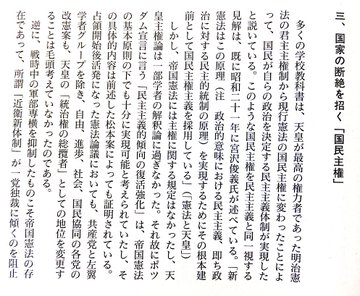 三、国家の断絶を招く「国民主権」
多くの学校教科書は、天皇が最高の権力者であった明治憲
法の君主主権制から現行憲法の国民主権に変わったことによ
って、国民が自らの政治を決定する民主主義体制が実現した
と説いている。このような国民主権を民主主義と同一視する
見解は、既に昭和二十一年に宮沢俊義氏が述べている。「新
憲法はこの原理（注　政治的意味における民主主義、即ち政
治に対する民主的統制の原理）を実現するためにその根本建
前として国民主権主義を採用している」（『憲法と天皇』）
しかし、帝国憲法には主権に関する規定はなかったし、天
皇主権論は一部学者の解釈論に過ぎなかった。それ故にポツ
ダム宣言に言う「民主主義的傾向の復活強化」は、帝国憲法
の基本原則の下でも十分に実現可能と考えられていたし、そ
の具体的内容は前述した松本案によっても証明されている。
占領開始後活発になった憲法論議においても、共産党と左翼
学者グループを除き、自由、進歩、社会、国民協同の各党の
改憲案も、天皇の「統治権の総攬者」としての地位を変更す
ることは毛頭考えていなかったのである。
逆に、戦時中の軍部専横を抑制したものこそ帝国憲法の存
在であって、所謂「近衛新体制」が一党独裁に傾くのを阻止